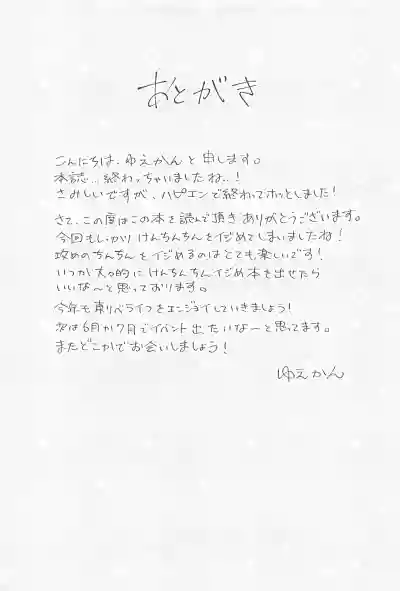 おとがき
こんにちは、ゆえかんと申します。
本誌...終わっちゃいましたね..!
さみしいですが、ハピエンで終わってホッとしました!
さて、この度はこの本を読んで頂きありがとうございます。
今回もしっかりけんちんちんをイジめてしまいましたね!
攻めのちんちんをイジめるのはとても楽しいです!
いつか 的にけんちんちんイジめ本を出せたら
いいな〜と思っております。
今年も東リベライフをエンジョイしていきましょう!
次は6月か7月でイベント出たいなーと思ってます。
またどこかでお会いしましょう!
ゆえかん